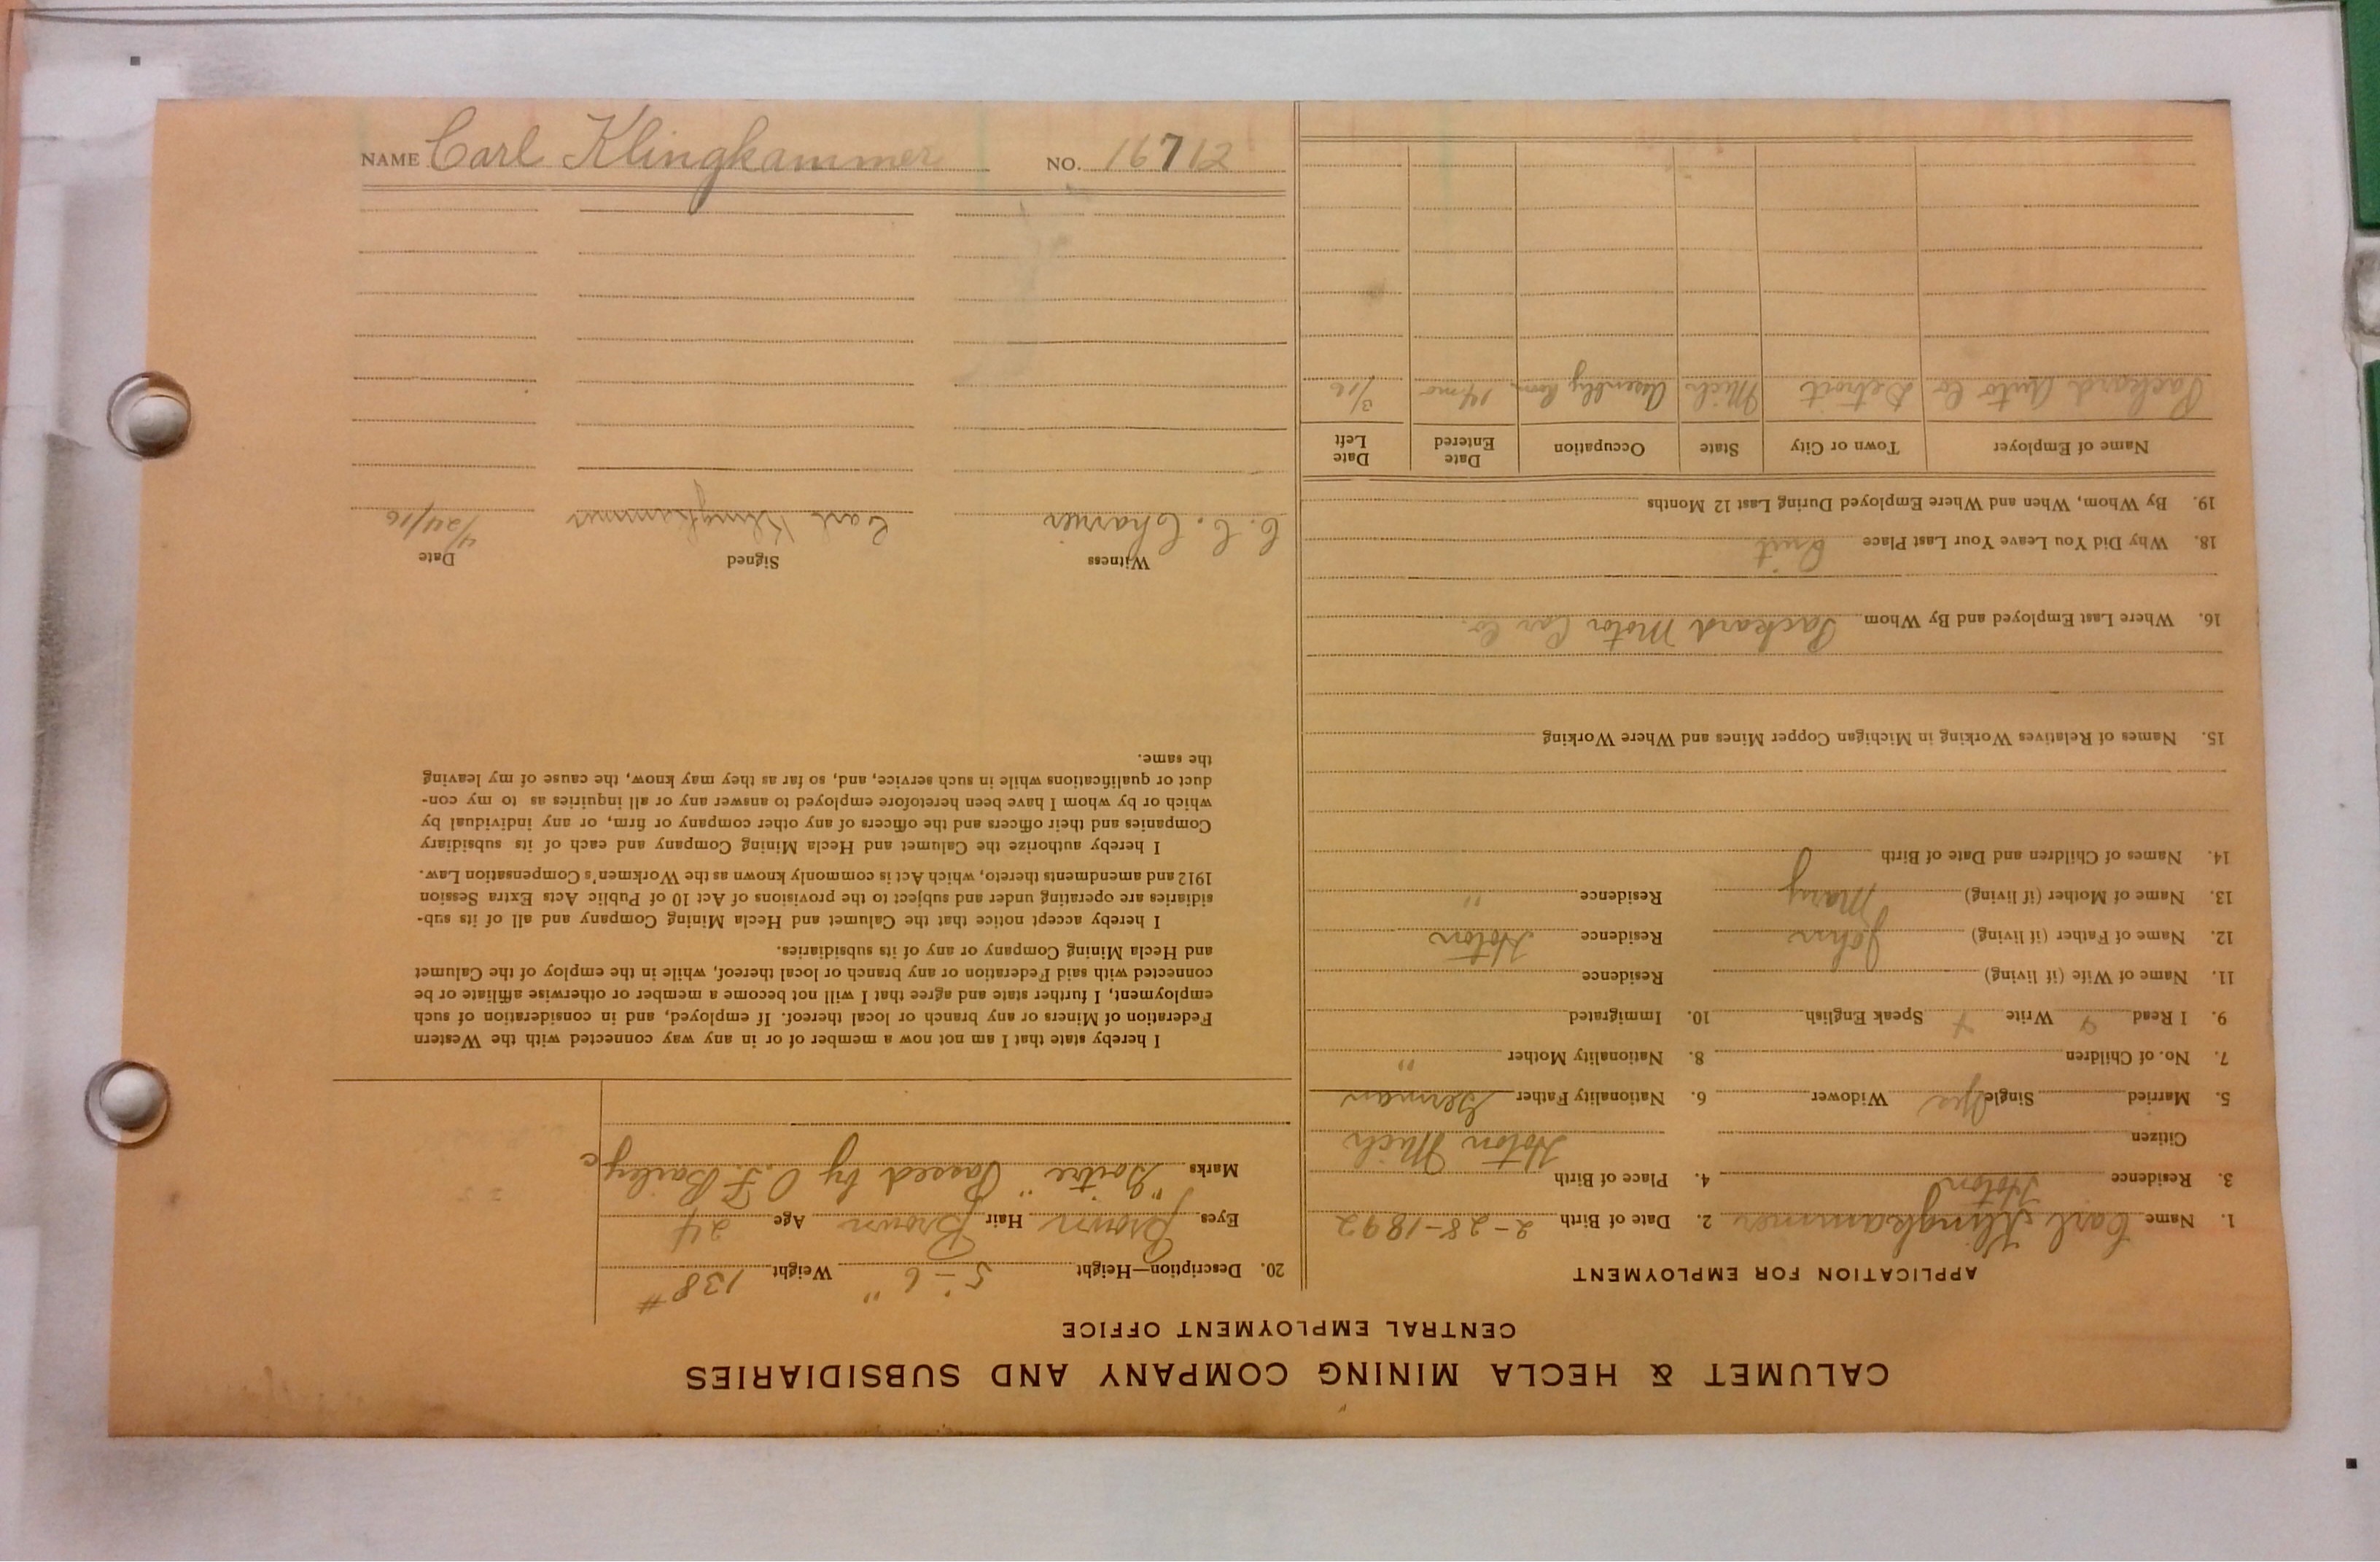 CALUMET & HECLA MINING COMPANY AND SUBSIDIARIES
CENTRAL EMPLOYMENT OFFICE
APPLICATION FOR EMPLOYMENT
1. Name Carl Klingkammer 2. Date of Birth 2-28-1892
3. Residence Hoton 4. Place of Birth Hoton Mich
Citizen
5. Married Single Yes Widower 6. Nationality Father German
7. No. of Children 8. Nationality Mother "
9. I Read Write Speak English 10. Immigrated
11. Name of Wife (if living) Residence
12. Name of Father (if living) John Residence Hoton
13. Name of Mother (if living) Mary Residence "
14. Names of Children and Date of Birth
15. Names of Relatives Working in Michigan Copper Mines and Where Working
16. Where Last Employed and By Whom Packard Motor Car Co.
18. Why Did You Leave Your Last Place Quit
19. By Whom, When and Where Employed During Last 12 Months
Name of Employer Town or City State Occupation Date Entered Date Left
Packard Auto Co Detroit Mich Assembly 14 mo 3/16
20. Description—Height 5'-6" Weight 138#
Eyes Brown Hair Brown Age 24
Marks "Goitre" Passed by O. F. Bailey
I hereby state that I am not now a member of or in any way connected with the Western
Federation of Miners or any branch or local thereof. If employed, and in consideration of such
employment, I further state and agree that I will not become a member or otherwise affiliate or be
connected with said Federation or any branch or local thereof, while in the employ of the Calumet
and Hecla Mining Company or any of its subsidiaries.
I hereby accept notice that the Calumet and Hecla Mining Company and all of its sub-
sidiaries are operating under and subject to the provisions of Act 10 of Public Acts Extra Session
1912 and amendments thereto, which Act is commonly known as the Workmen's Compensation Law.
I hereby authorize the Calumet and Hecla Mining Company and each of its subsidiary
Companies and their officers and the officers of any other company or firm, or any individual by
which or by whom I have been heretofore employed to answer any or all inquiries as to my con-
duct or qualifications while in such service, and, so far as they may know, the cause of my leaving
the same.
Witness Signed Date
C. C. Charrier Carl Klingkammer 4/24/16
NAME Carl Klingkammer NO. 16712